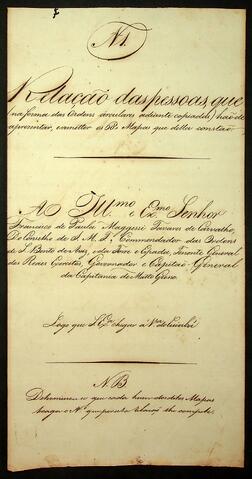 N1.
Relação das pessoas, que
(na forma das Ordens circulares adiante copiadas) hão de
apresentar, e remetter os Mapas que delles constão
Ao Ill.mo e Ex.mo Senhor
Francisco de Paula Maggessi Tavares de Carvalho,
Do Conselho de S. M. F., Commendador das Ordens
de S. Bento de Aviz, e da Torre e Espada, Tenente General
dos Reaes Exercitos, Governador e Capitão General
da Capitania de Matto Grosso
Logo que S. Ex.ª chegar a V.ª do Cuiabá
N.B
Determinou-se que cada hum dos ditos Mapas
traga o N.º que por esta relação lhe compete.